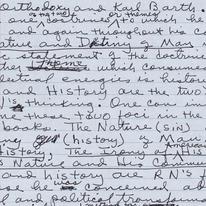 Orthodoxy and Karl Barth.
as motifs or themes
one doctrines, in which he
and again throughout his c
ature and Destiny of Man, i
e statement of the doctrine
theme which consumes
lestial energies is histor
and History are the two
's thinking. One can in
ne these two foci in the
books. The Nature (sin)
ny (history) of Man
American
History, The Irony of His
s Nature and His Commun
and history are RN's f
se he was concerned ab
and political transform